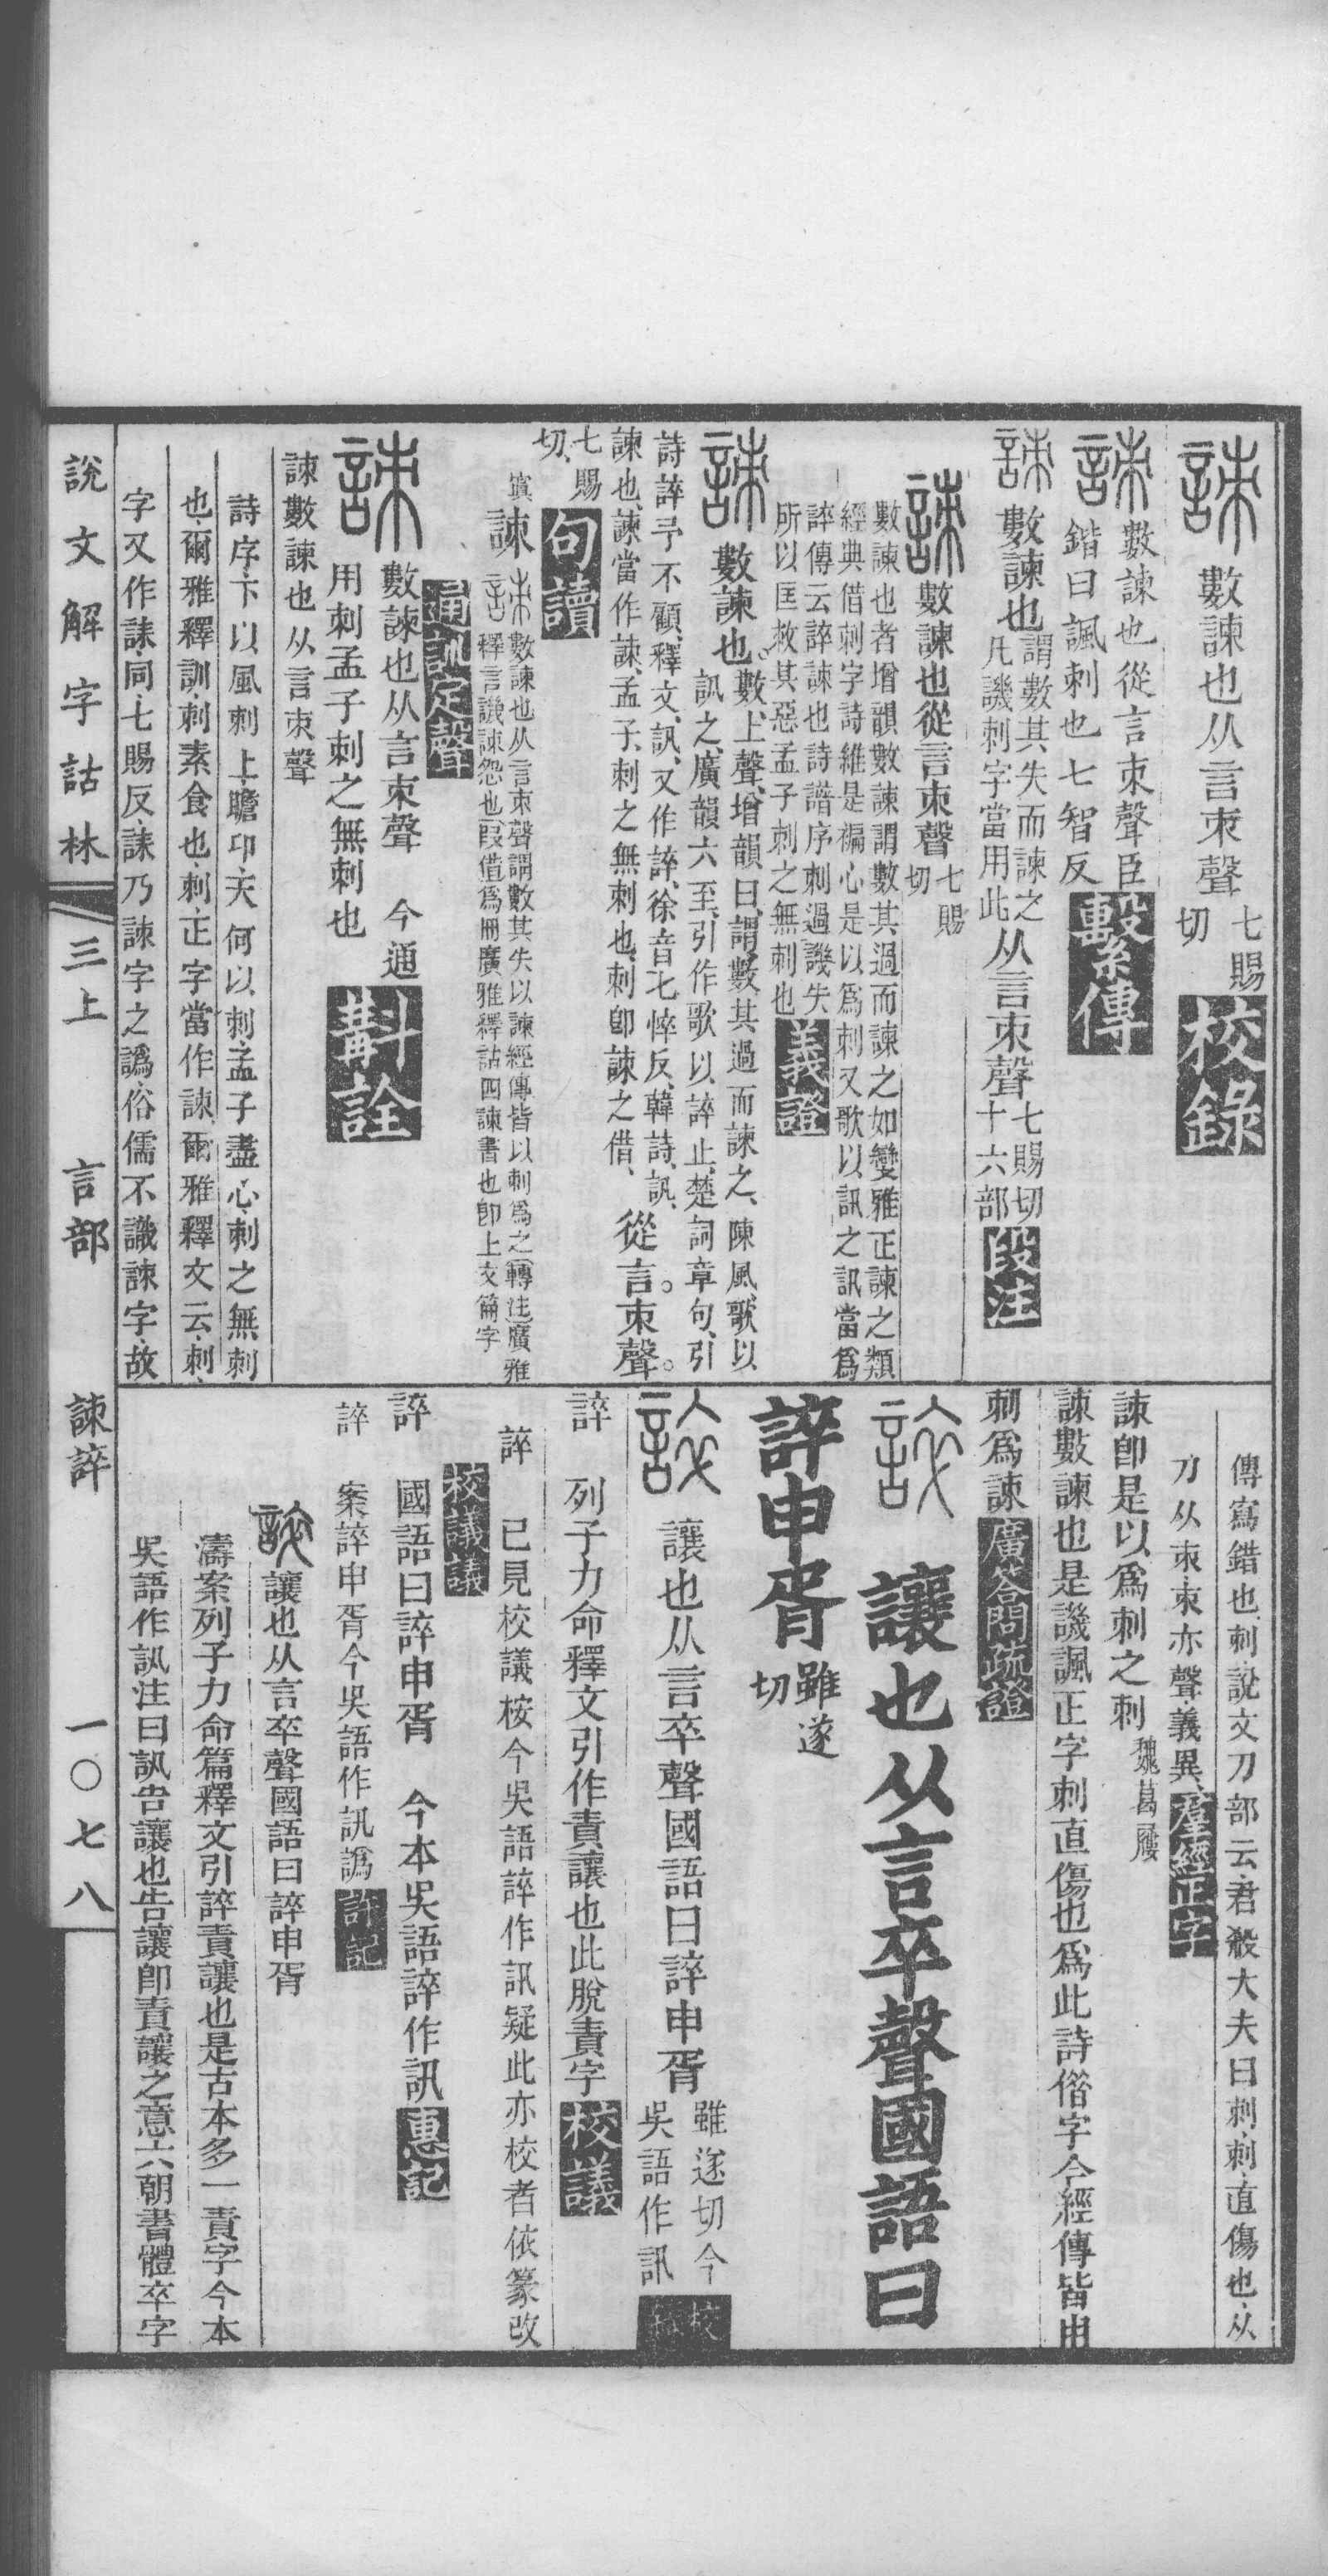 諫 數諫也从言朿聲七賜切 校錄
諫 數諫也從言朿聲臣
鍇曰諷刺也七智反 繫傳
諫 數諫也謂數其失而諫之凡譏刺字當用此从言朿聲七賜切十六部 段注
諫 數諫也從言朿聲七賜切
數諫也者增韻數諫謂數其過而諫之如變雅正諫之類
經典借刺字詩維是褊心是以爲刺又歌以訊之訊當爲
誶傳云誶諫也詩譜序刺過譏失
所以匡救其惡孟子刺之無刺也 義證
諫 數諫也。數、上聲、增韻曰、謂數其過而諫之、陳風、歌以
訊之、廣韻六至、引作歌以誶止、楚詞章句、引
詩誶予不顧、釋文、訊、又作誶、徐音七悴反、韓詩、訊、
諫也、諫當作諫、孟子、刺之無刺也、刺卽諫之借、從言。朿聲。
七賜切、 句讀
諫 數諫也从言朿聲謂數其失以諫經傳皆以刺爲之(轉注)廣雅
釋言譏諫怨也(叚借)爲冊廣雅釋詁四諫書也卽上文篇字
通訓定聲
諫 數諫也从言朿聲 今通
用刺孟子刺之無刺也 斠詮
諫數諫也从言朿聲
詩序、卞以風刺上、瞻卬、天何以刺、孟子盡心、刺之無刺
也、爾雅釋訓、刺素食也、刺正字當作諫、爾雅釋文云、刺、
字又作誄、同、七賜反、誄乃諫字之譌、俗儒不識諫字、故
傳寫錯也、刺、說文刀部云、君殺大夫曰刺、刺、直傷也、从
刀从朿、朿亦聲、義異、 羣經正字
諫卽是以爲刺之刺魏葛屨
諫數諫也是譏諷正字刺直傷也爲此詩借字今經傳皆由
刺爲諫 廣答問疏證
誶 讓也从言卒聲國語曰
誶申胥雖遂切
誶 讓也从言卒聲國語曰誶申胥雖遂切今吳語作訊 校錄
誶 列子力命釋文引作責讓也此脫責字 校議
誶 已見校議桉今吳語誶作訊疑此亦校者依篆改
校議議
誶 國語曰誶申胥 今本吳語誶作訊 惠記
誶 案誶申胥今吳語作訊譌 許記
誶 讓也从言卒聲國語曰誶申胥
濤案列子力命篇釋文引誶責讓也是古本多一責字今本
吳語作訊注曰訊告讓也告讓卽責讓之意六朝書體卒字
說文解字詁林 三上 言部 諫誶 一〇七八